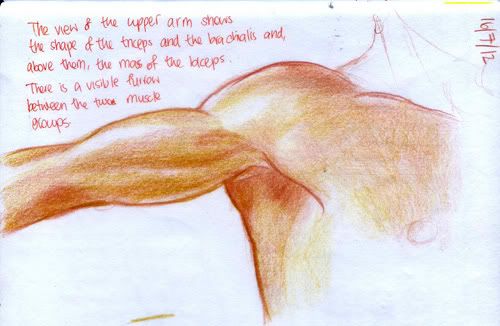 The view of the upper arm shows
the shape of the triceps and the brachialis and,
above them, the mass of the biceps.
There is a visible furrow
between the two muscle
groups.
16/7/12